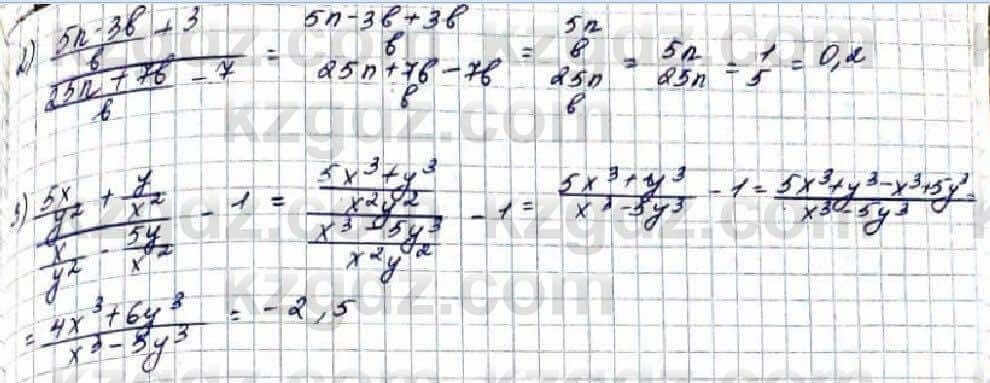 2) ((5n - 3b)/b + 3)/((25n + 7b)/b - 7) = ((5n - 3b + 3b)/b)/((25n + 7b - 7b)/b) = (5n/b)/(25n/b) = 5n/25n = 1/5 = 0,2
3) (5x/y² + y/x²)/(x/y² - 5y/x²) - 1 = ((5x³ + y³)/(x²y²))/((x³ - 5y³)/(x²y²)) - 1 = (5x³ + y³)/(x³ - 5y³) - 1 = (5x³ + y³ - x³ + 5y³)/(x³ - 5y³) =
= (4x³ + 6y³)/(x³ - 5y³) = -2,5
kzgdz.com